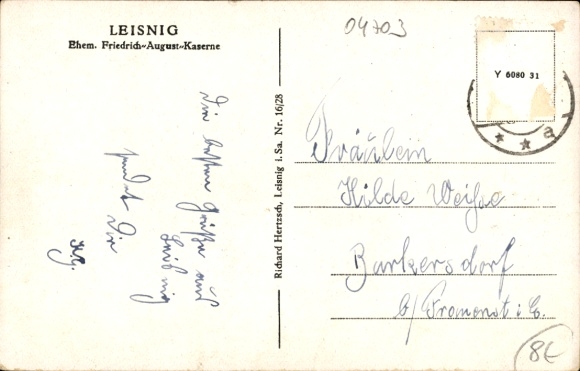 LEISNIG
Ehem. Friedrich-August-Kaserne
04703
Y 6080 31
a
Die besten Grüße aus
Leisnig
sendet Dir
Richard Hertzsch, Leisnig i. Sa. Nr. 16/28
Fräulein
Hilde Weiße
Burkersdorf
b/ i. E.
8€